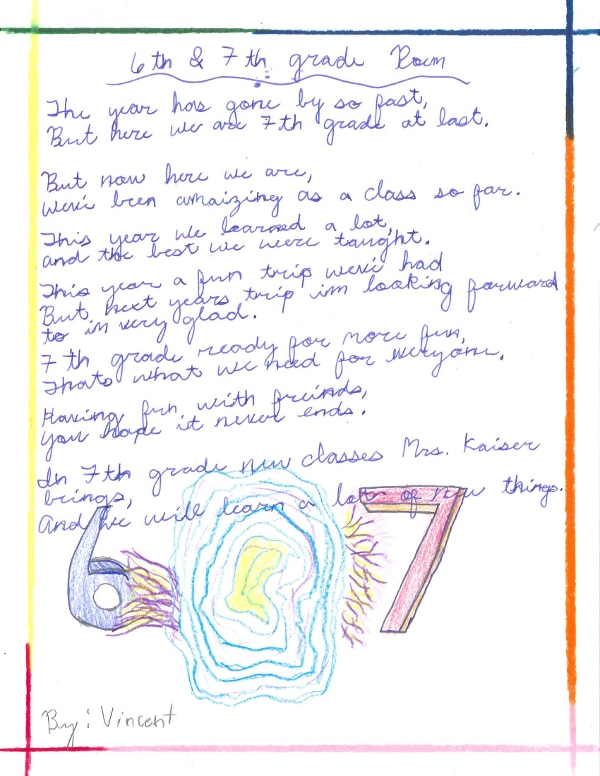 6th & 7th grade Poem
The year has gone by so fast,
But here we are 7th grade at last.
But now here we are,
weve been amaizing as a class so far.
This year we learned a lot,
and the best we were taught.
This year a fun trip weve had
But next years trip im looking forward
to im very glad.
7th grade ready for more fun,
Thats what we need for everyone.
Having fun with freinds,
you hope it never ends.
In 7th grade new classes Mrs. Kaiser
brings,
And we will learn a lot of new things.
6 7
By: Vincent